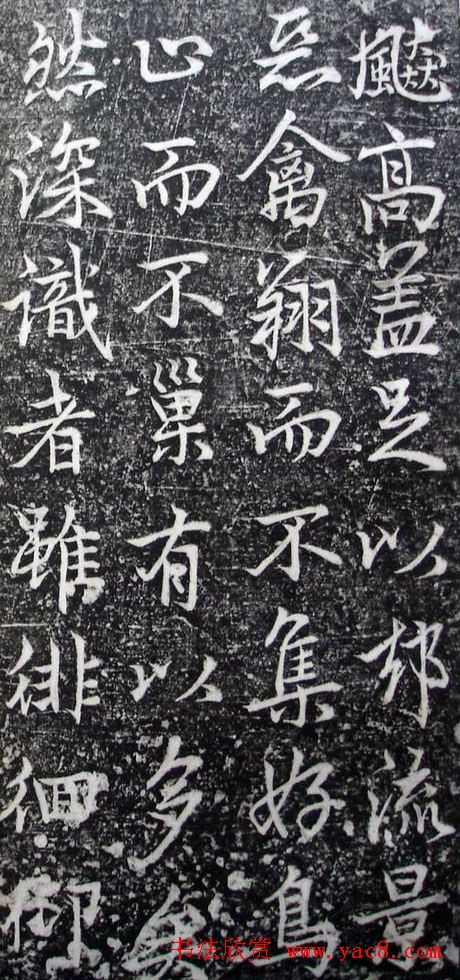 飇高盖足以却流景
惡禽翔而不集好鳥
止而不巢有以多矣
然深識者雖徘徊仰
书法欣赏 www.yac8.com